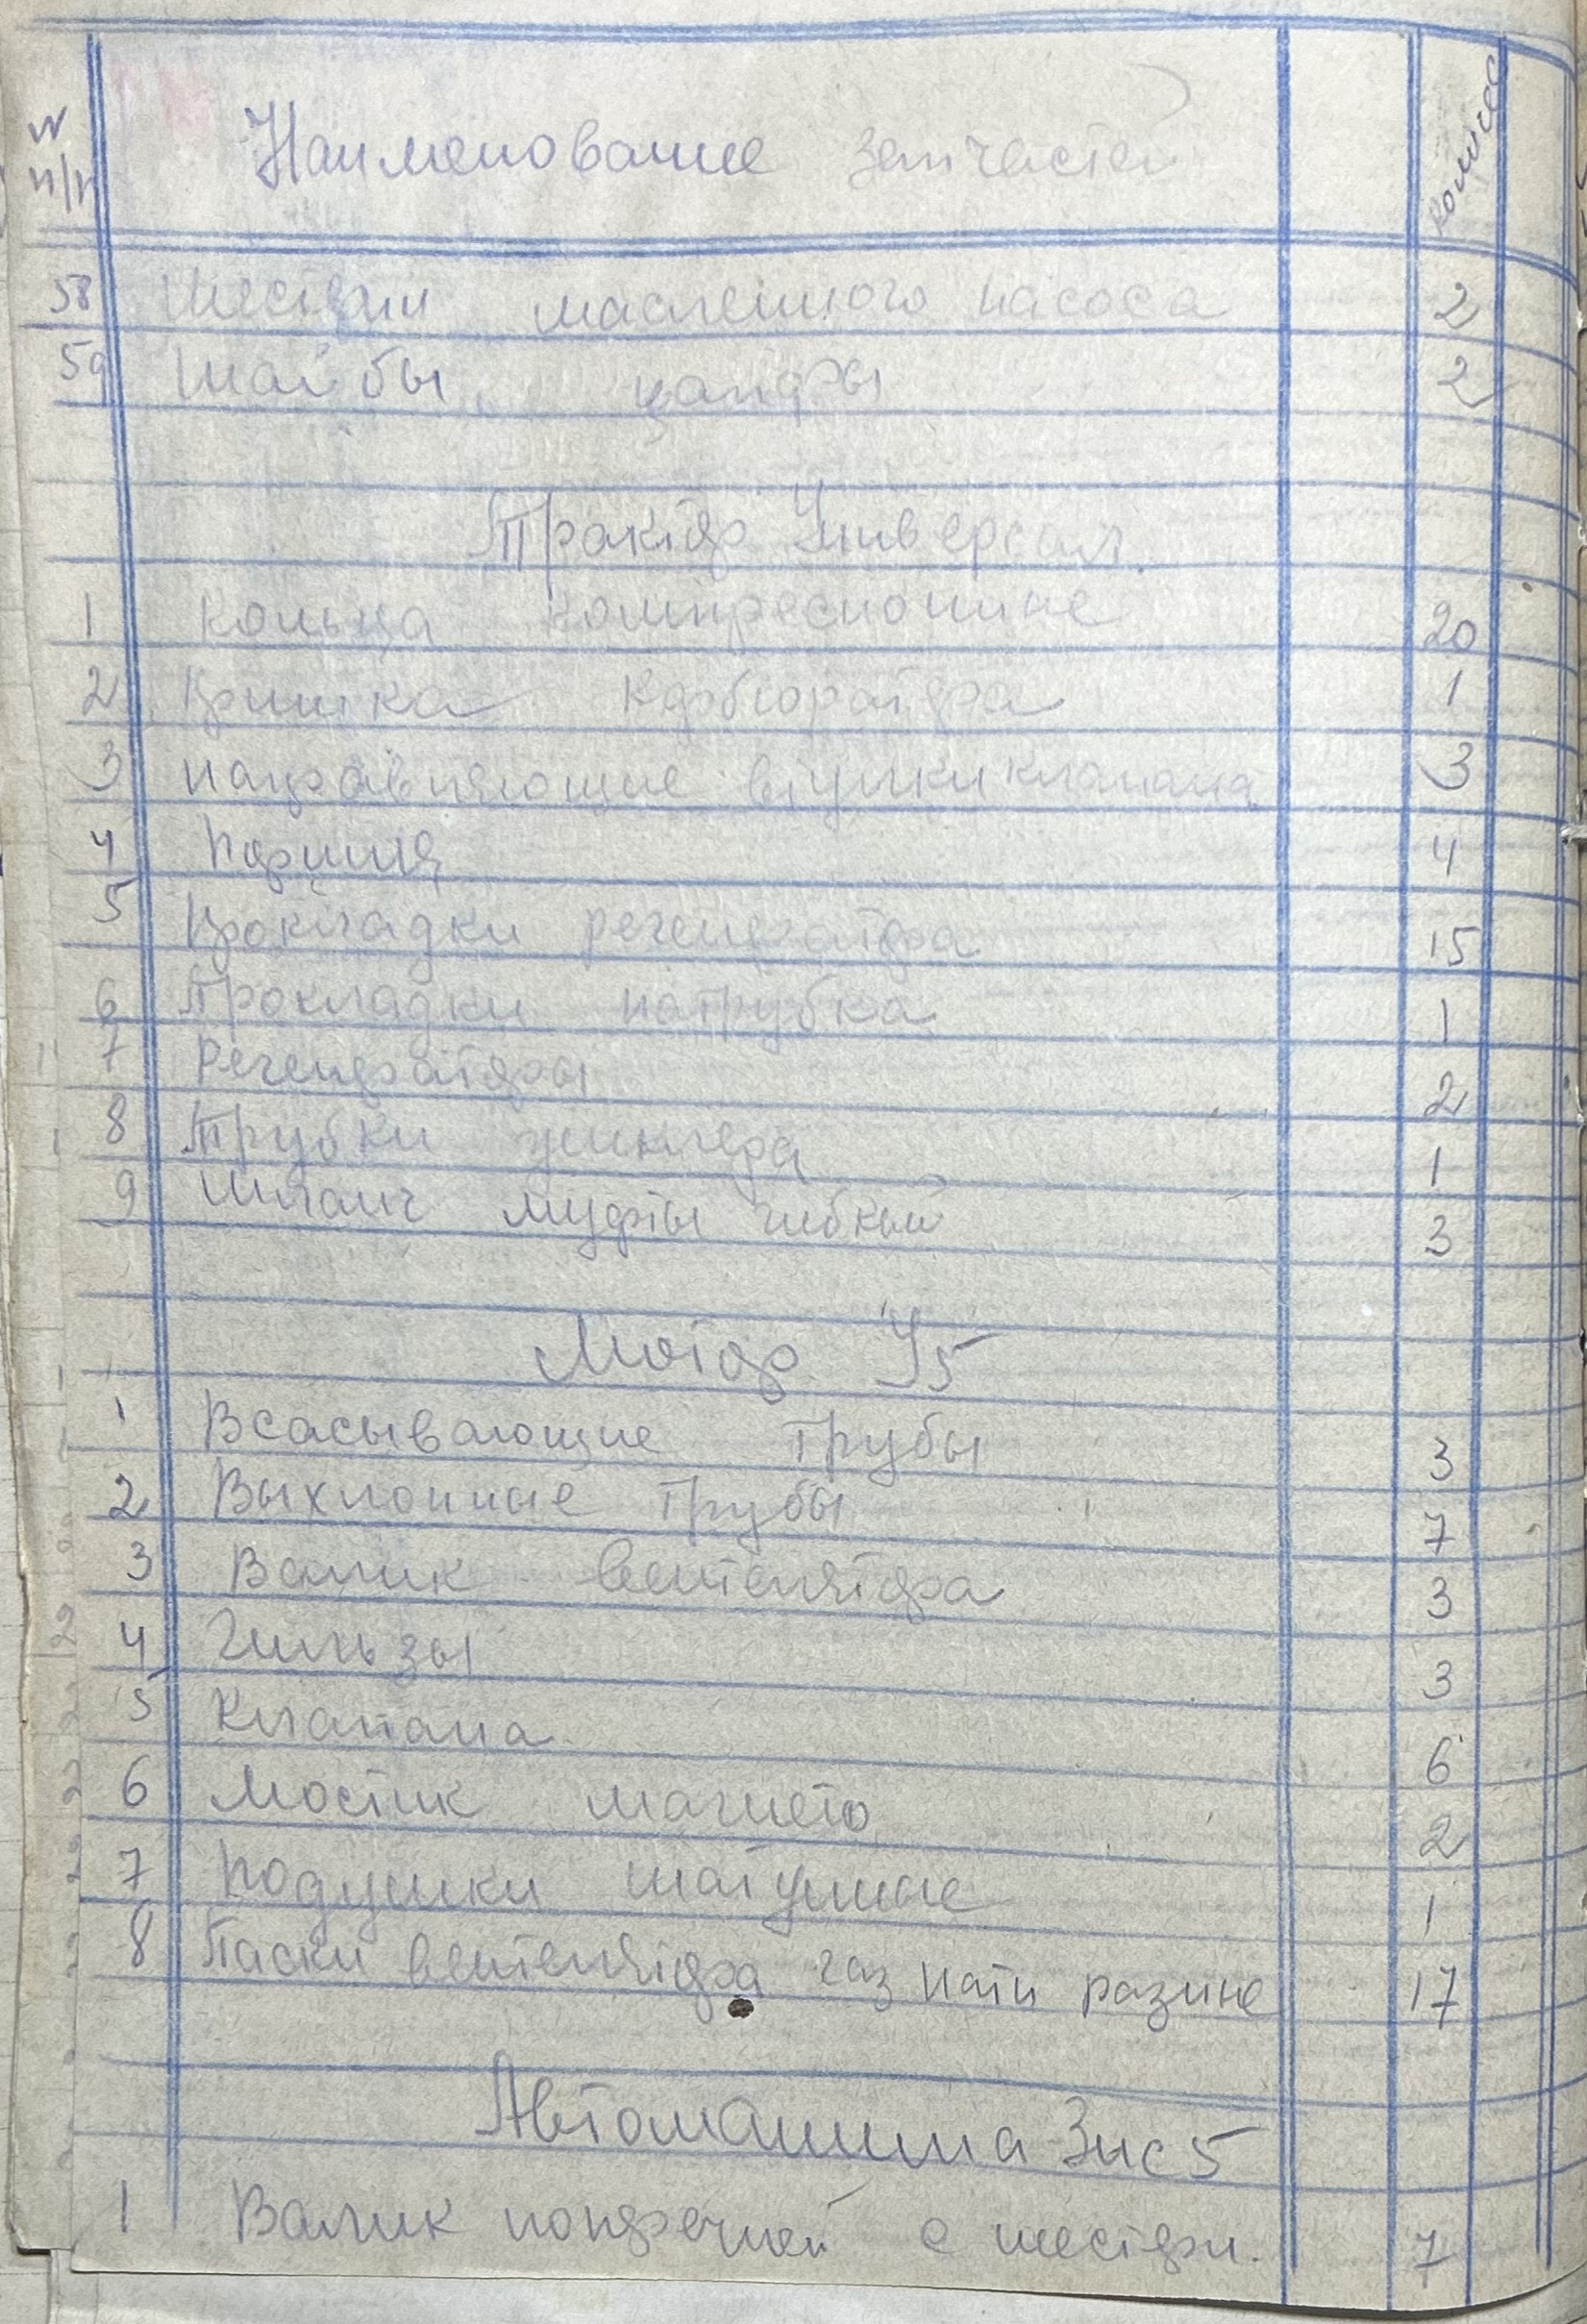 N п/п Наименование запчастей Колич
58 Шестерни масленного насоса 2
59 Шайбы цапфы 2
Трактор Универсал
1 Кольца компресионные 20
2 Крышка карбюратора 1
3 направляющие втулки клапана 3
4 Поршня 4
5 Прокладки регенератора 15
6 Прокладки патрубка 1
7 Регенераторы 2
8 Трубки 1
9 Шланг муфты гибкий 3
Мотор У5
1 Всасывающие трубы 3
2 Выхлопные трубы 7
3 Валик вентелятора 3
4 Гильзы 3
5 Клапана 6
6 Мостик магнето 2
7 Подушки шатунные 1
8 Паски вентелятора газ нати разние 17
Автомашина Зис 5
1 Валик попоречней с шестерн. 7